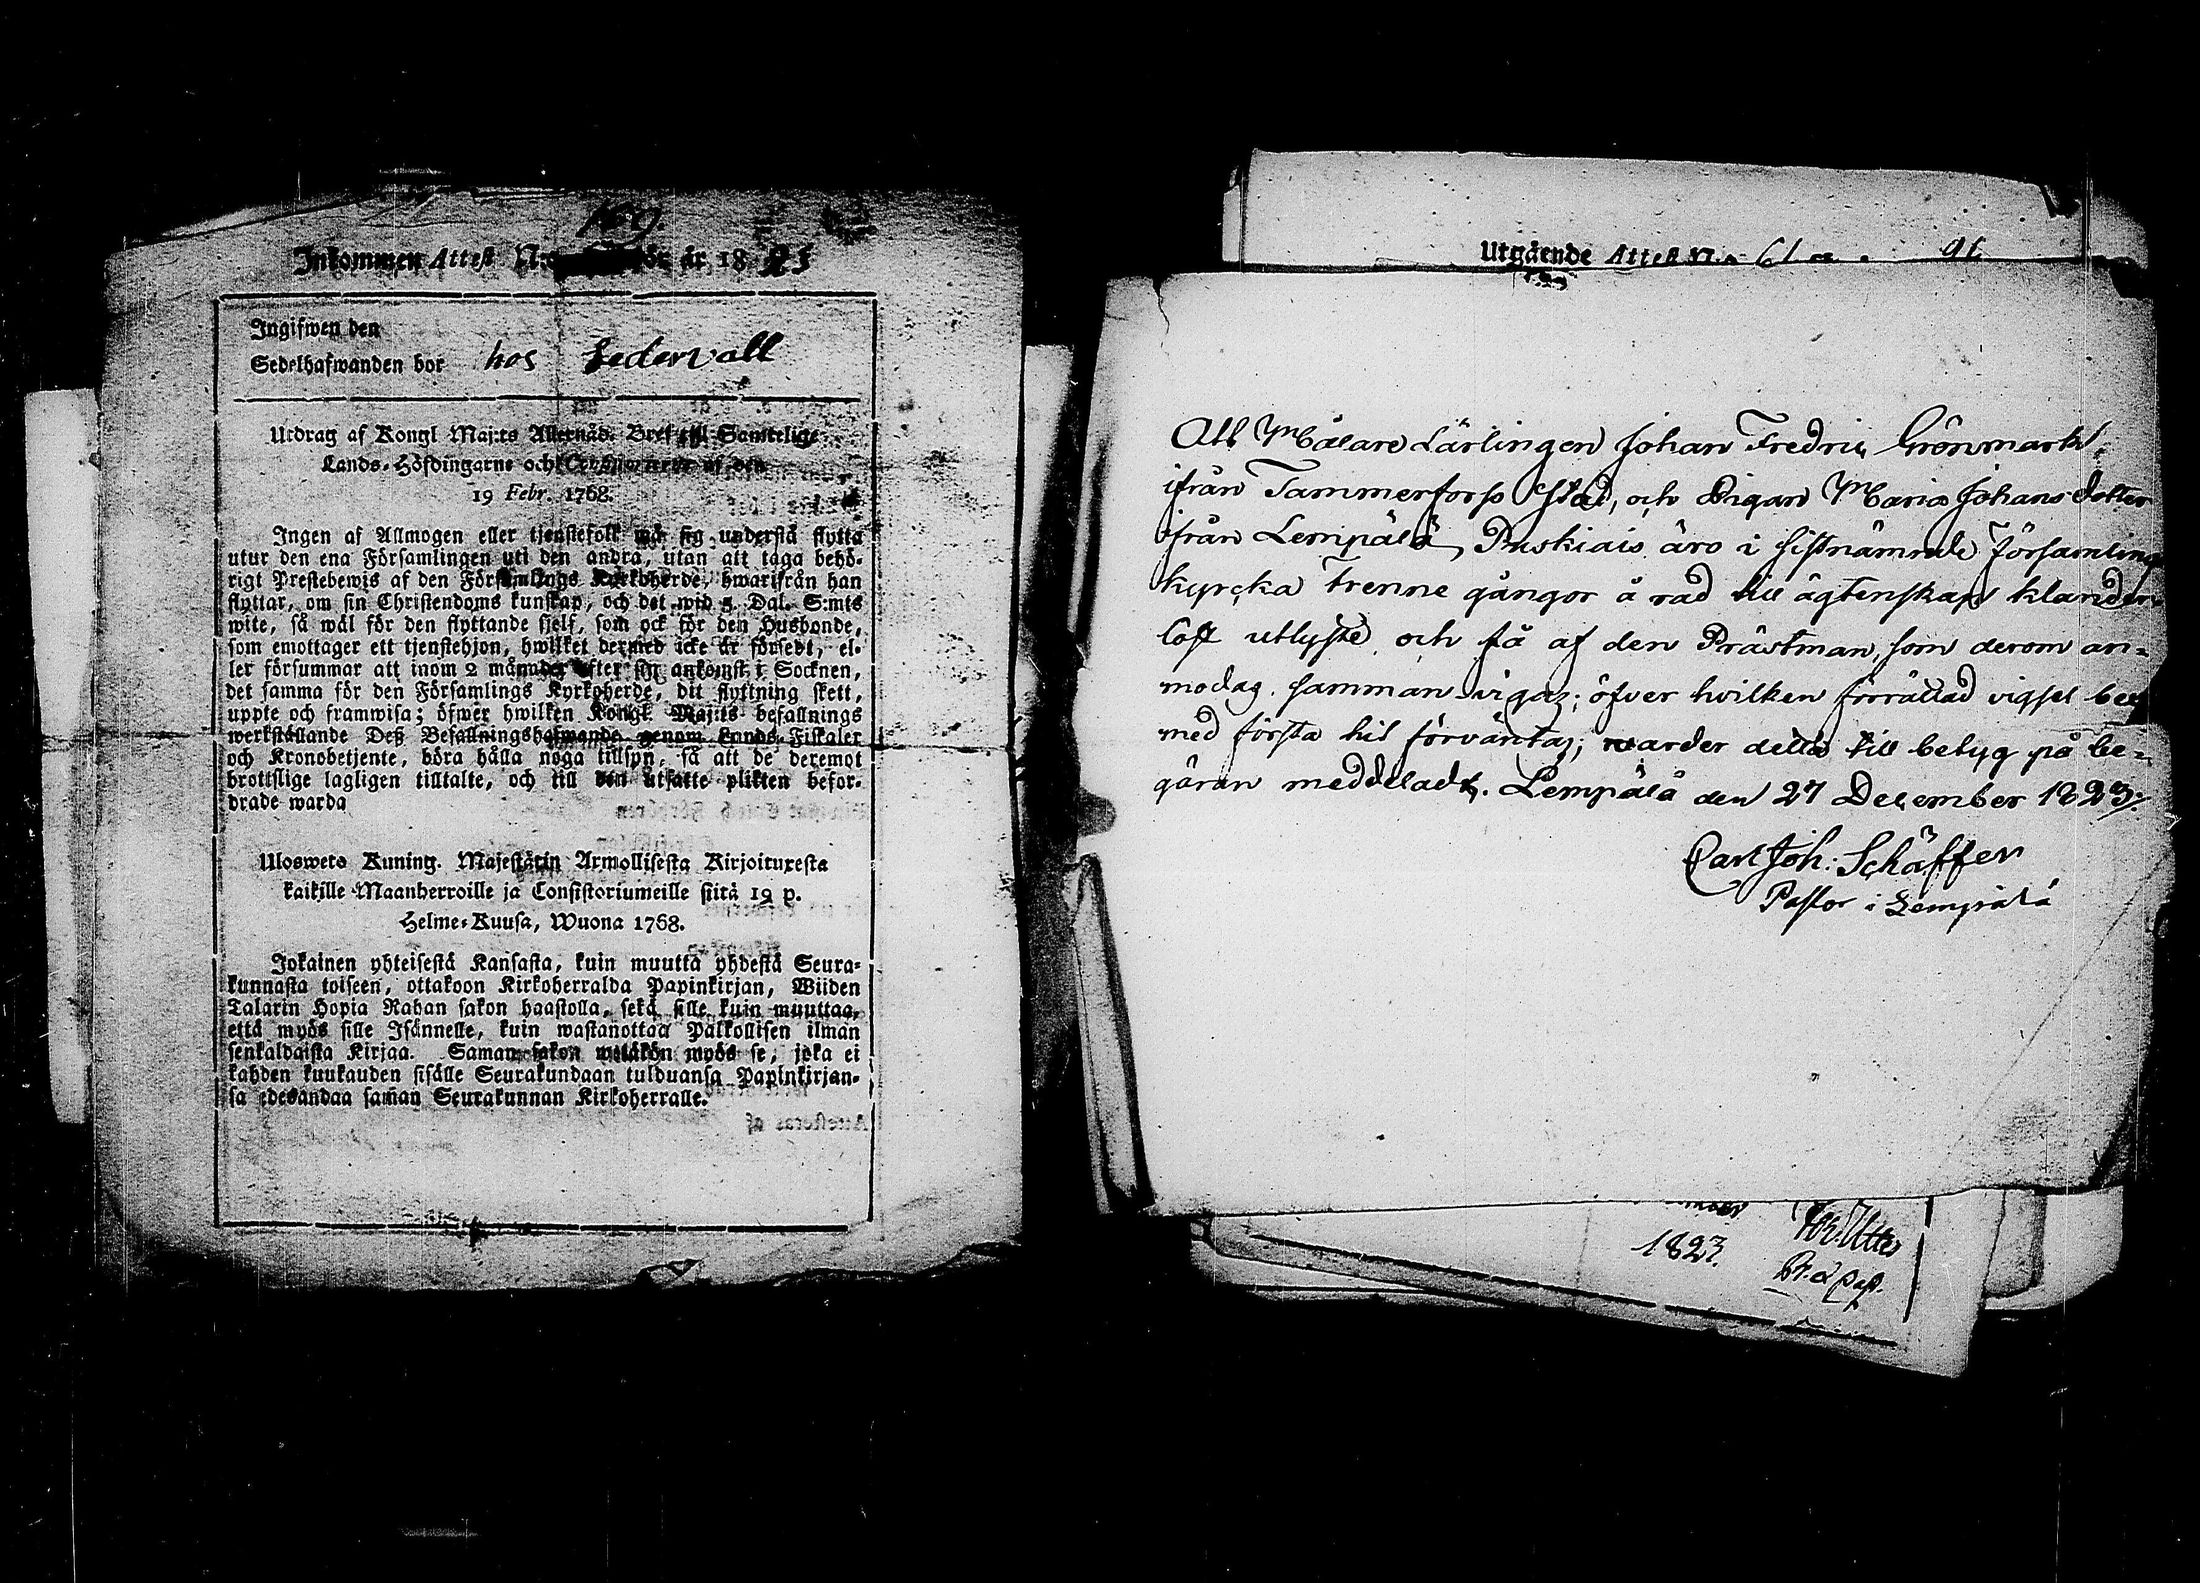 169.
Inkommen Attest N:o för år 1823
Ingifwen den
Sedelhafwanden bor hos Sedervall
Utdrag af Kongl Maj:ts Allernåd. Bref till Samtelige
Lands-Höfdingarne och Consistorierne af den
19 Febr. 1768.
Ingen af Allmogen eller tjenstefolk må sig understå flytta
utur den ena Församlingen uti den andra, utan att taga behö-
rigt Prestebewis af den Församlings Kyrkoherde, hwarifrån han
flyttar, om sin Christendoms kunskap, och det wid 5. Dal. S:mts
wite, så wäl för den flyttande sjelf, som ock för den Husbonde,
som emottager ett tjenstehjon, hwilket dermed icke är försedt, el-
ler försummar att inom 2 månader efter sin ankomst i Socknen,
det samma för den Församlings Kyrkoherde, dit flyttning skett,
uppte och framwisa; öfwer hwilken Kongl. Maj:ts befallnings
werkställande Deß Befallningshafwande genom Lands-Fiskaler
och Kronobetjente, böra hålla noga tillsyn, så att de deremot
brottslige lagligen tilltalte, och till den utsatte plikten befor-
drade warda
Ulosweto Kuning. Majestätin Armollisesta Kirjoituxesta
kaikille Maanherroille ja Consistoriumeille siitä 19 p.
Helme-Kuusa, Wuona 1768.
Jokainen yhteisestä Kansasta, kuin muutta yhdestä Seura-
kunnasta toiseen, ottakoon Kirkoherralda Papinkirjan, Wiiden
Talarin Hopia Rahan sakon haastolla, sekä sille kuin muuttaa,
että myös sille Isännelle, kuin wastanottaa Palkollisen ilman
senkaldaista Kirjaa. Saman sakon wetäkön myös se, joka ei
kahden kuukauden sisälle Seurakundaan tulduansa Papinkirjan-
sa edesandaa saman Seurakunnan Kirkoherralle.
Utgående Attest N:o 61
Att Målare Lärlingen Johan Fredric Grönmark
ifrån Tammerforss Stad, och Pigan Maria Johansdotter
ifrån Lempälä, Puskiais äro i sistnämnde Församling
kyrcka Trenne gångor å rad till ägtenskap klander-
löst utlyste och få af den Prästman, som derom an-
modas samman vigas; öfver hvilken förrättad vigsel bev
med första hit förväntas; warder detta till betyg på be-
gäran meddeladt. Lempälä den 27 December 1823.
Carl Joh: Schäffer
Pastor i Lempälä
1823.